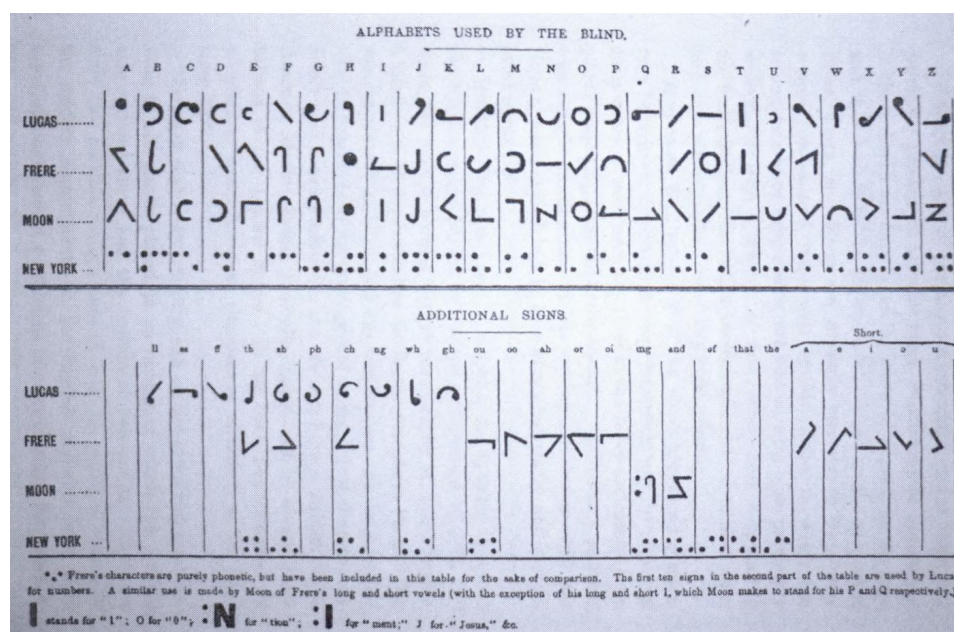 ALPHABETS USED BY THE BLIND.
A B C D E F G H I J K L M N O P Q R S T U V W X Y Z
LUCAS
FRERE
MOON
NEW YORK
ADDITIONAL SIGNS.
Short.
ll ss ff th sh ph ch ng wh gh ou oo ah or oi ing and of that the a e i o u
LUCAS
FRERE
MOON
NEW YORK
*** Frere's characters are purely phonetic, but have been included in this table for the sake of comparison. The first ten signs in the second part of the table are used by Luca
for numbers. A similar use is made by Moon of Frere's long and short vowels (with the exception of his long and short I, which Moon makes to stand for his P and Q respectively.)
I stands for "1"; O for "0"; :N for "tion"; :I for "ment;" J for "Jesus," &c.